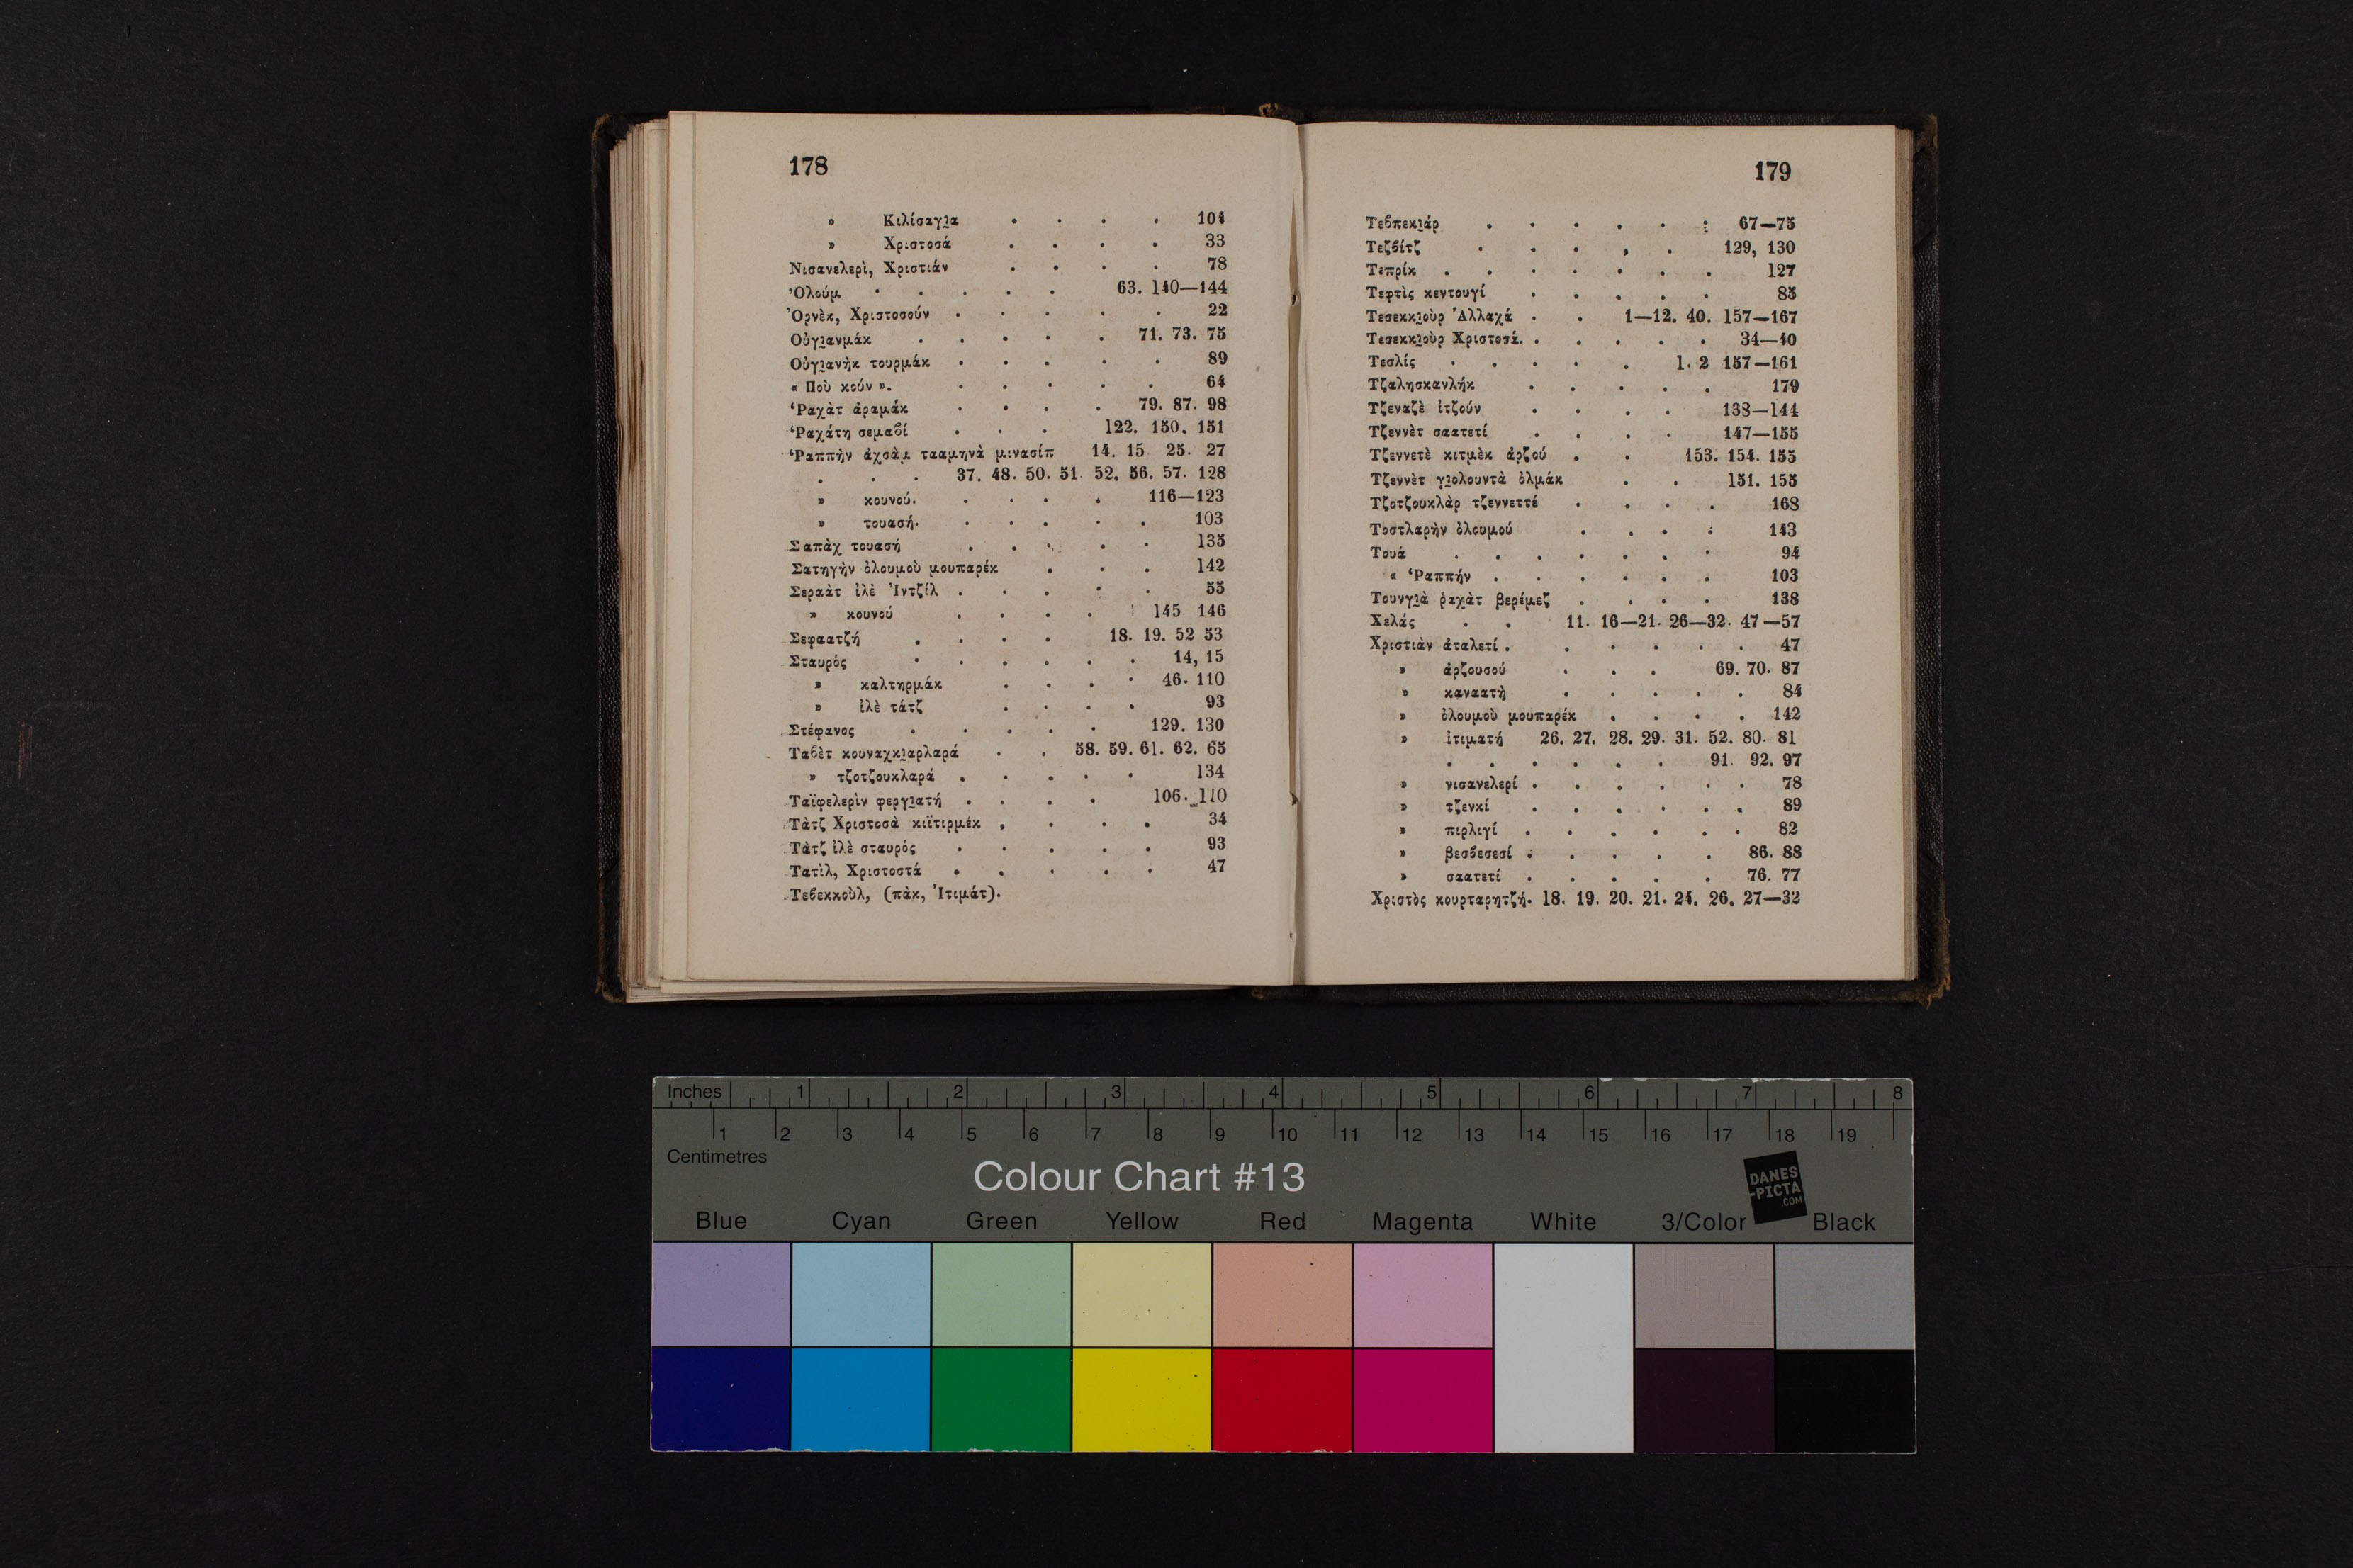 178
» Κιλίσαγι̲α . . . . 104
» Χριστοσά . . . . 33
Νισανελερὶ, Χριστιάν . . . . 78
Ὀλούμ . . . . . 63. 140—144
Ὀρνὲκ, Χριστοσούν . . . . . 22
Οὐγι̲ανμάκ . . . . . 71. 73. 75
Οὐγι̲ανὴκ τουρμάκ . . . . . 89
« Ποὺ κούν ». . . . . . 64
Ῥαχὰτ ἀραμάκ . . . . 79. 87. 98
Ῥαχάτη σεμαβί . . . 122. 150. 151
Ῥαππὴν ἀχσὰμ τααμηνὰ μινασίπ 14. 15 25. 27
. . . 37. 48. 50. 51. 52. 56. 57. 128
» κουνού. . . . . 116—123
» τουασή. . . . . . 103
Σαπὰχ τουασή . . . . . 135
Σατηγὴν ὀλουμοὺ μουπαρέκ . . . 142
Σεραὰτ ἰλὲ Ἰντζίλ . . . . . 55
» κουνού . . . . 145. 146
Σεφαατζή . . . . 18. 19. 52 53
Σταυρός . . . . . . 14, 15
» καλτηρμάκ . . . . 46. 110
» ἰλὲ τάτζ . . . . 93
Στέφανος . . . . . 129. 130
Ταβὲτ κουναχκι̲αρλαρά . . 58. 59. 61. 62. 65
» τζοτζουκλαρά . . . . . 134
Ταϊφελερὶν φεργι̲ατή . . . . 106. 110
Τὰτζ Χριστοσὰ κιϊτιρμέκ , . . . 34
Τὰτζ ἰλὲ σταυρός . . . . . 93
Τατὶλ, Χριστοστά . . . . . 47
Τεβεκκοὺλ, (πὰκ, Ἰτιμάτ).
179
Τεβπεκι̲άρ . . . . . : 67—75
Τεζβίτζ . . . , . 129, 130
Τεπρίκ . . . . . . . 127
Τεφτὶς κεντουγί . . . . . 85
Τεσεκκι̲οὺρ Ἀλλαχά . . 1—12. 40. 157—167
Τεσεκκι̲οὺρ Χριστοσά. . . . . . 34—40
Τεσλίς . . . . . 1. 2 157—161
Τζαλησκανλήκ . . . . . 179
Τζεναζὲ ἰτζούν . . . . 138—144
Τζεννὲτ σαατετί . . . . 147—155
Τζεννετὲ κιτμὲκ ἀρζού . . 153. 154. 155
Τζεννὲτ γι̲ολουντὰ ὀλμάκ . . 151. 155
Τζοτζουκλὰρ τζεννεττέ . . . . 168
Τοστλαρὴν ὀλουμού . . . : 143
Τουά . . . . . . . 94
« Ῥαππήν . . . . . . 103
Τουνγι̲ὰ ῥαχὰτ βερέμεζ . . . . 138
Χελάς . . 11. 16—21. 26—32. 47—57
Χριστιὰν ἀταλετί . . . . . . 47
» ἀρζουσού . . . 69. 70. 87
» καναατὴ . . . . . 84
» ὀλουμοὺ μουπαρέκ . . . . 142
» ἰτιματή 26. 27. 28. 29. 31. 52. 80. 81
. . . . . . 91. 92. 97
» νισανελερί . . . . . . 78
» τζενκί . . . . . . 89
» πιρλιγί . . . . . . 82
» βεσβεσεσί . . . . . 86. 88
» σαατετί . . . . . 76. 77
Χριστὸς κουρταρητζή. 18. 19. 20. 21. 24. 26. 27—32
Inches 1 2 3 4 5 6 7 8
1 2 3 4 5 6 7 8 9 10 11 12 13 14 15 16 17 18 19
Centimetres
Colour Chart #13
DANES
-PICTA
.COM
Blue Cyan Green Yellow Red Magenta White 3/Color Black